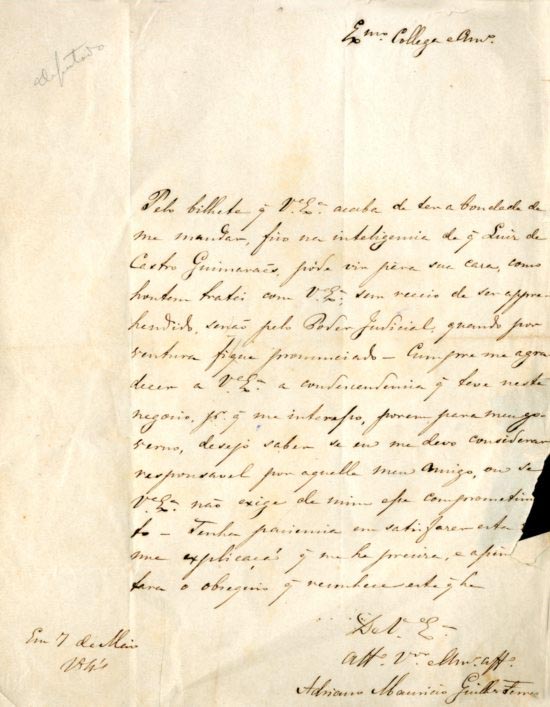 Exmo Collega e Amo.
deputado
Pelo bilhete q V.Ea. acaba de ter a bondade de
me mandar, fico na inteligencia de q Luiz de
Castro Guimaraes, póde vir para sua caza, como
hontem tratei com V.Ea. sem receio de ser appre
hendido, senão pelo Poder Judicial, quando por
ventura fique pronunciado - Cumpre me agra
decer a V.Ea. a condescendencia q teve neste
negocio, pr. q me interesso, porem para meu go-
verno, desejo saber se eu me devo considerar
responsavel por aquelle meu Amigo, ou se
V.Ea. não exige de mim esse comprometim
to - Tenha paciencia em satisfazer esta
me q me he preciza, e
tara o obsequio q reconhece este q he
De V. Ea.
Atto. Vor. e Amo. affo.
Adriano Mauricio Guilhe Ferre
Em 7 de Maio